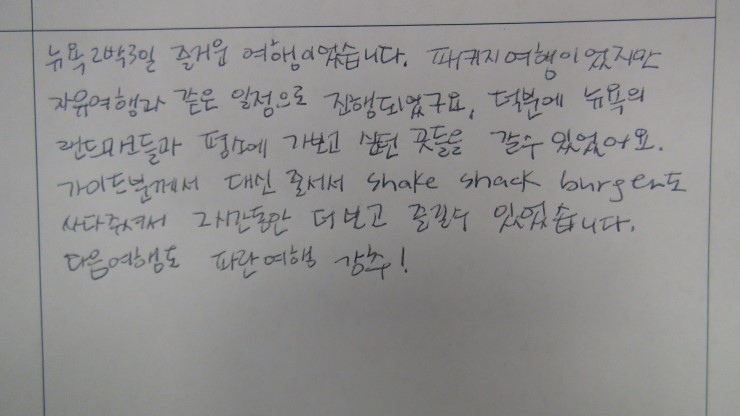 뉴욕 2박3일 즐거운 여행이었습니다. 패키지여행이었지만
자유여행과 같은 일정으로 진행되었구요, 덕분에 뉴욕의
랜드마크들과 평소에 가보고 싶던 곳들을 갈수 있었어요.
가이드분께서 대신 줄서서 shake shack burger도
사다주셔서 2시간동안 더 보고 즐길수 있었습니다.
다음여행도 파란여행 강추!